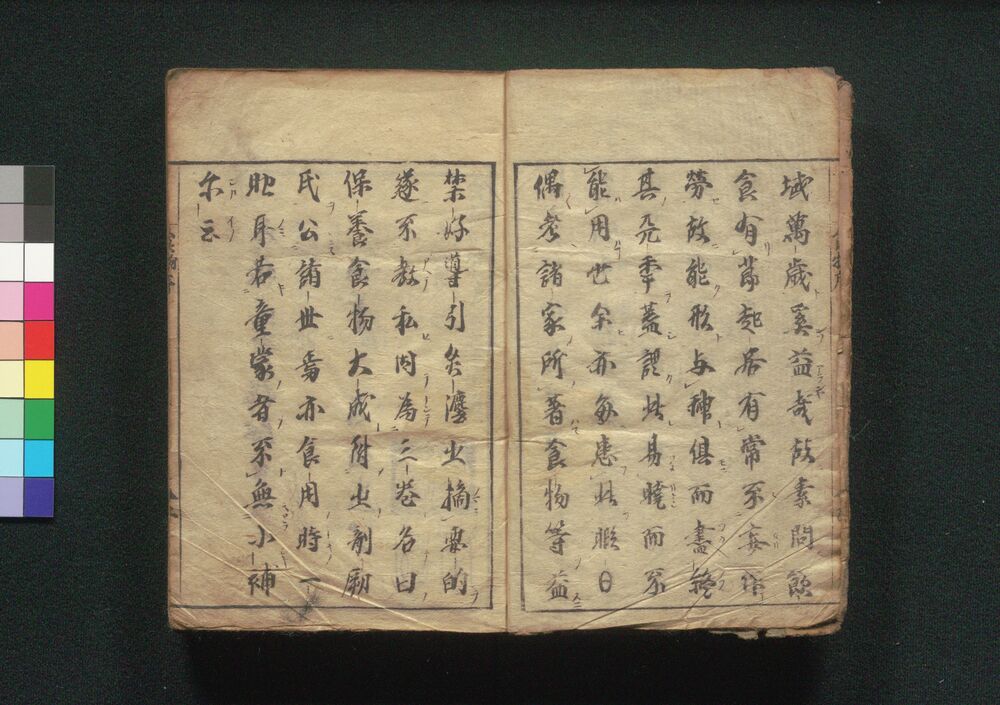 域萬歳奚益哉故素問飲
食有節起居有常不妄作
勞故能形与神俱而盡終
其天年蓋謂此易曉而不
能用也余亦多患此暇日
偶考諸家所著食物等益
禁好導引灸灋之摘要的
遂不敖私閒為三卷名曰
保養食物大成附之剞劂
氏公諸世焉亦食用時一
助耳若童蒙者不無小補
尓云